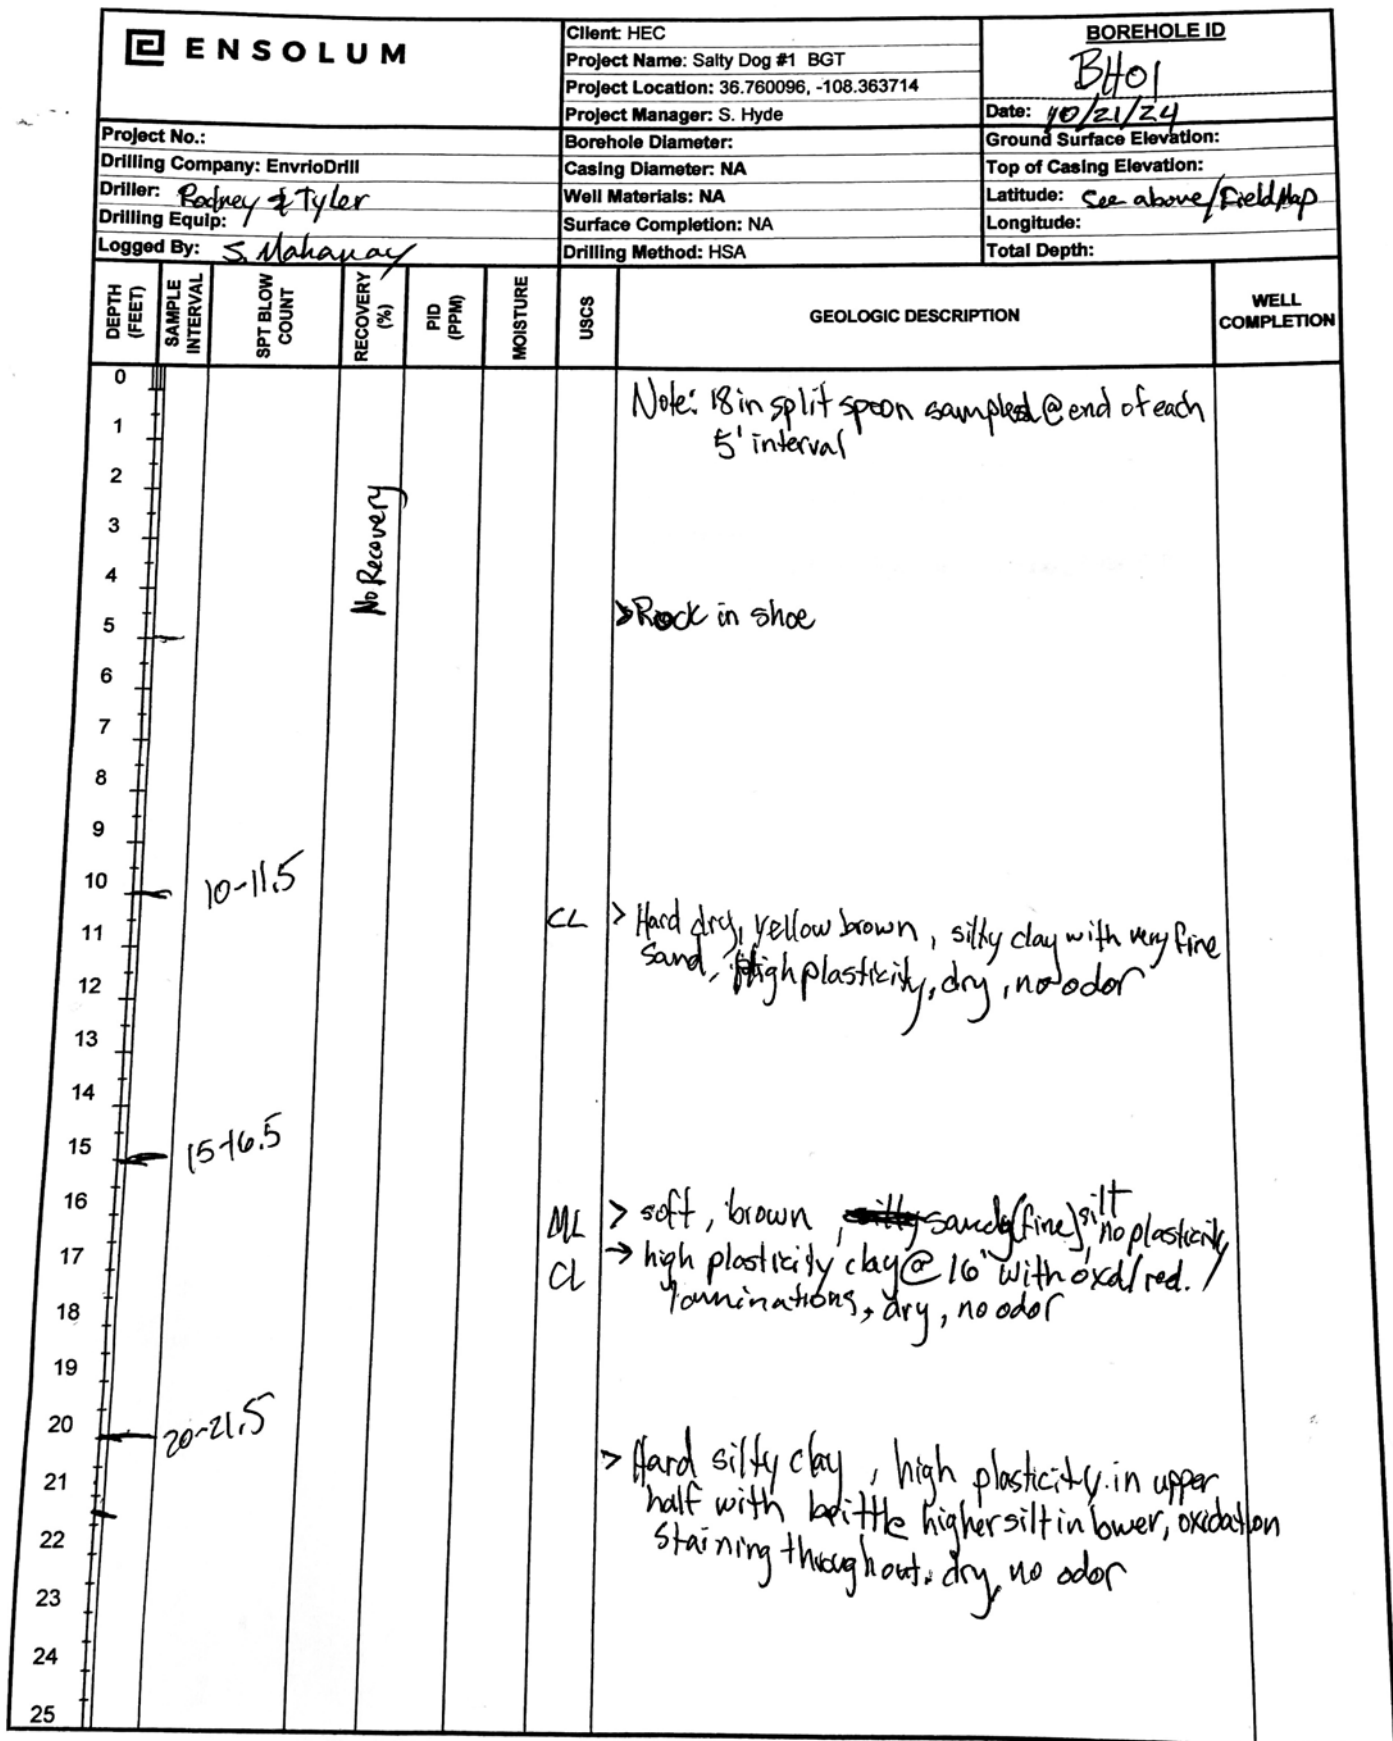 ENSOLUM
Client: HEC
Project Name: Salty Dog #1 BGT
Project Location: 36.760096, -108.363714
Project Manager: S. Hyde
BOREHOLE ID
BH01
Date: 10/21/24
Project No.:
Drilling Company: EnvrioDrill
Driller: Rodney & Tyler
Drilling Equip:
Logged By: S. Mahanay
Borehole Diameter:
Casing Diameter: NA
Well Materials: NA
Surface Completion: NA
Drilling Method: HSA
Ground Surface Elevation:
Top of Casing Elevation:
Latitude: See above/Field Map
Longitude:
Total Depth:
DEPTH (FEET)
SAMPLE INTERVAL
SPT BLOW COUNT
RECOVERY (%)
PID (PPM)
MOISTURE
USCS
GEOLOGIC DESCRIPTION
WELL COMPLETION
0
Note: 18in split spoon sampled @ end of each
5' interval
1
2
No Recovery
3
4
5
>Rock in shoe
6
7
8
9
10
10-11.5
CL > Hard dry, yellow brown, silty clay with very fine
sand, High plasticity, dry, no odor
11
12
13
14
15
15-16.5
16
ML > soft, brown, sandy (fine) silt, no plasticity
17
CL → high plasticity clay @ 16' with oxd/red.
laminations, dry, no odor
18
19
20
20-21.5
> Hard silty clay, high plasticity in upper
half with brittle higher silt in lower, oxidation
staining throughout. dry, no odor
21
22
23
24
25